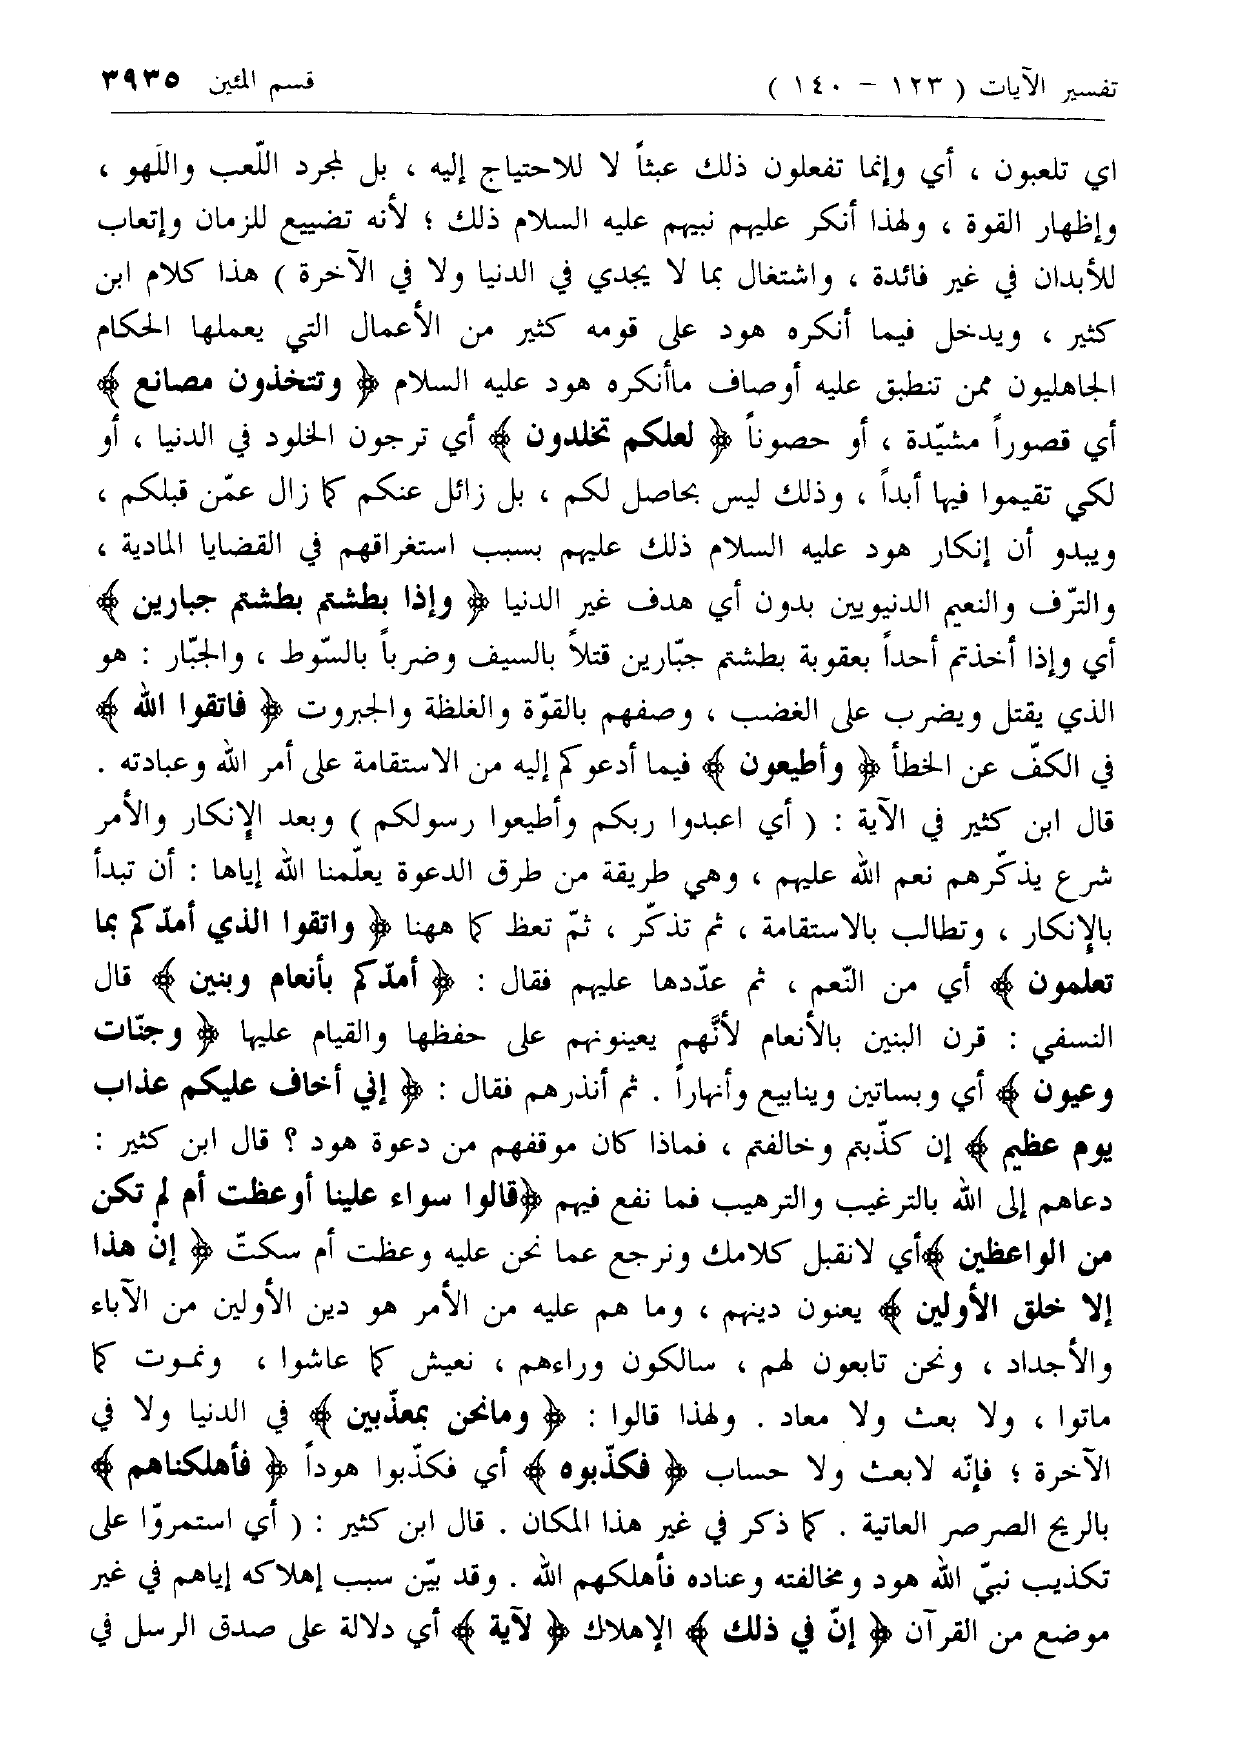 تفسير الآيات ( ١٢٣ – ١٤٠ ) قسم المئين ٣٩٣٥
اي تلعبون ، أي وإنما تفعلون ذلك عبثاً لا للاحتياج إليه ، بل لمجرد اللّعب واللَهو ،
وإظهار القوة ، ولهذا أنكر عليهم نبيهم عليه السلام ذلك ؛ لأنه تضييع للزمان وإتعاب
للأبدان في غير فائدة ، واشتغال بما لا يجدي في الدنيا ولا في الآخرة ) هذا كلام ابن
كثير ، ويدخل فيما أنكره هود على قومه كثير من الأعمال التي يعملها الحكام
الجاهليون ممن تنطبق عليه أوصاف ماأنكره هود عليه السلام ﴿ وتتخذون مصانع ﴾
أي قصوراً مشيّدة ، أو حصوناً ﴿ لعلكم تخلدون ﴾ أي ترجون الخلود في الدنيا ، أو
لكي تقيموا فيها أبداً ، وذلك ليس بحاصل لكم ، بل زائل عنكم كما زال عمّن قبلكم ،
ويبدو أن إنكار هود عليه السلام ذلك عليهم بسبب استغراقهم في القضايا المادية ،
والتّرف والنعيم الدنيويين بدون أي هدف غير الدنيا ﴿ وإذا بطشتم بطشتم جبارين ﴾
أي وإذا أخذتم أحداً بعقوبة بطشتم جبّارين قتلاً بالسيف وضرباً بالسّوط ، والجبّار : هو
الذي يقتل ويضرب على الغضب ، وصفهم بالقوّة والغلظة والجبروت ﴿ فاتقوا الله ﴾
في الكفّ عن الخطأ ﴿ وأطيعون ﴾ فيما أدعوكم إليه من الاستقامة على أمر الله وعبادته .
قال ابن كثير في الآية : ( أي اعبدوا ربكم وأطيعوا رسولكم ) وبعد الإنكار والأمر
شرع يذكّرهم نعم الله عليهم ، وهي طريقة من طرق الدعوة يعلّمنا الله إياها : أن تبدأ
بالإنكار ، وتطالب بالاستقامة ، ثم تذكّر ، ثمّ تعظ كما ههنا ﴿ واتقوا الذي أمدّكم بما
تعلمون ﴾ أي من النّعم ، ثم عدّدها عليهم فقال : ﴿ أمدّكم بأنعام وبنين ﴾ قال
النسفي : قرن البنين بالأنعام لأنَّهم يعينونهم على حفظها والقيام عليها ﴿ وجنّات
وعيون ﴾ أي وبساتين وينابيع وأنهاراً . ثم أنذرهم فقال : ﴿ إني أخاف عليكم عذاب
يوم عظيم ﴾ إن كذّبتم وخالفتم ، فماذا كان موقفهم من دعوة هود ؟ قال ابن كثير :
دعاهم إلى الله بالترغيب والترهيب فما نفع فيهم ﴿قالوا سواء علينا أوعظت أم لم تكن
من الواعظين ﴾أي لانقبل كلامك ونرجع عما نحن عليه وعظت أم سكتّ ﴿ إنْ هذا
إلا خلق الأولين ﴾ يعنون دينهم ، وما هم عليه من الأمر هو دين الأولين من الآباء
والأجداد ، ونحن تابعون لهم ، سالكون وراءهم ، نعيش كما عاشوا ، ونموت كما
ماتوا ، ولا بعث ولا معاد . ولهذا قالوا : ﴿ ومانحن بمعذّبين ﴾ في الدنيا ولا في
الآخرة ؛ فإنّه لابعث ولا حساب ﴿ فكذّبوه ﴾ أي فكذّبوا هوداً ﴿ فأهلكناهم ﴾
بالريح الصرصر العاتية . كما ذكر في غير هذا المكان . قال ابن كثير : ( أي استمروّا على
تكذيب نبيّ الله هود ومخالفته وعناده فأهلكهم الله . وقد بيّن سبب إهلاكه إياهم في غير
موضع من القرآن ﴿ إنّ في ذلك ﴾ الإهلاك ﴿ لآية ﴾ أي دلالة على صدق الرسل في